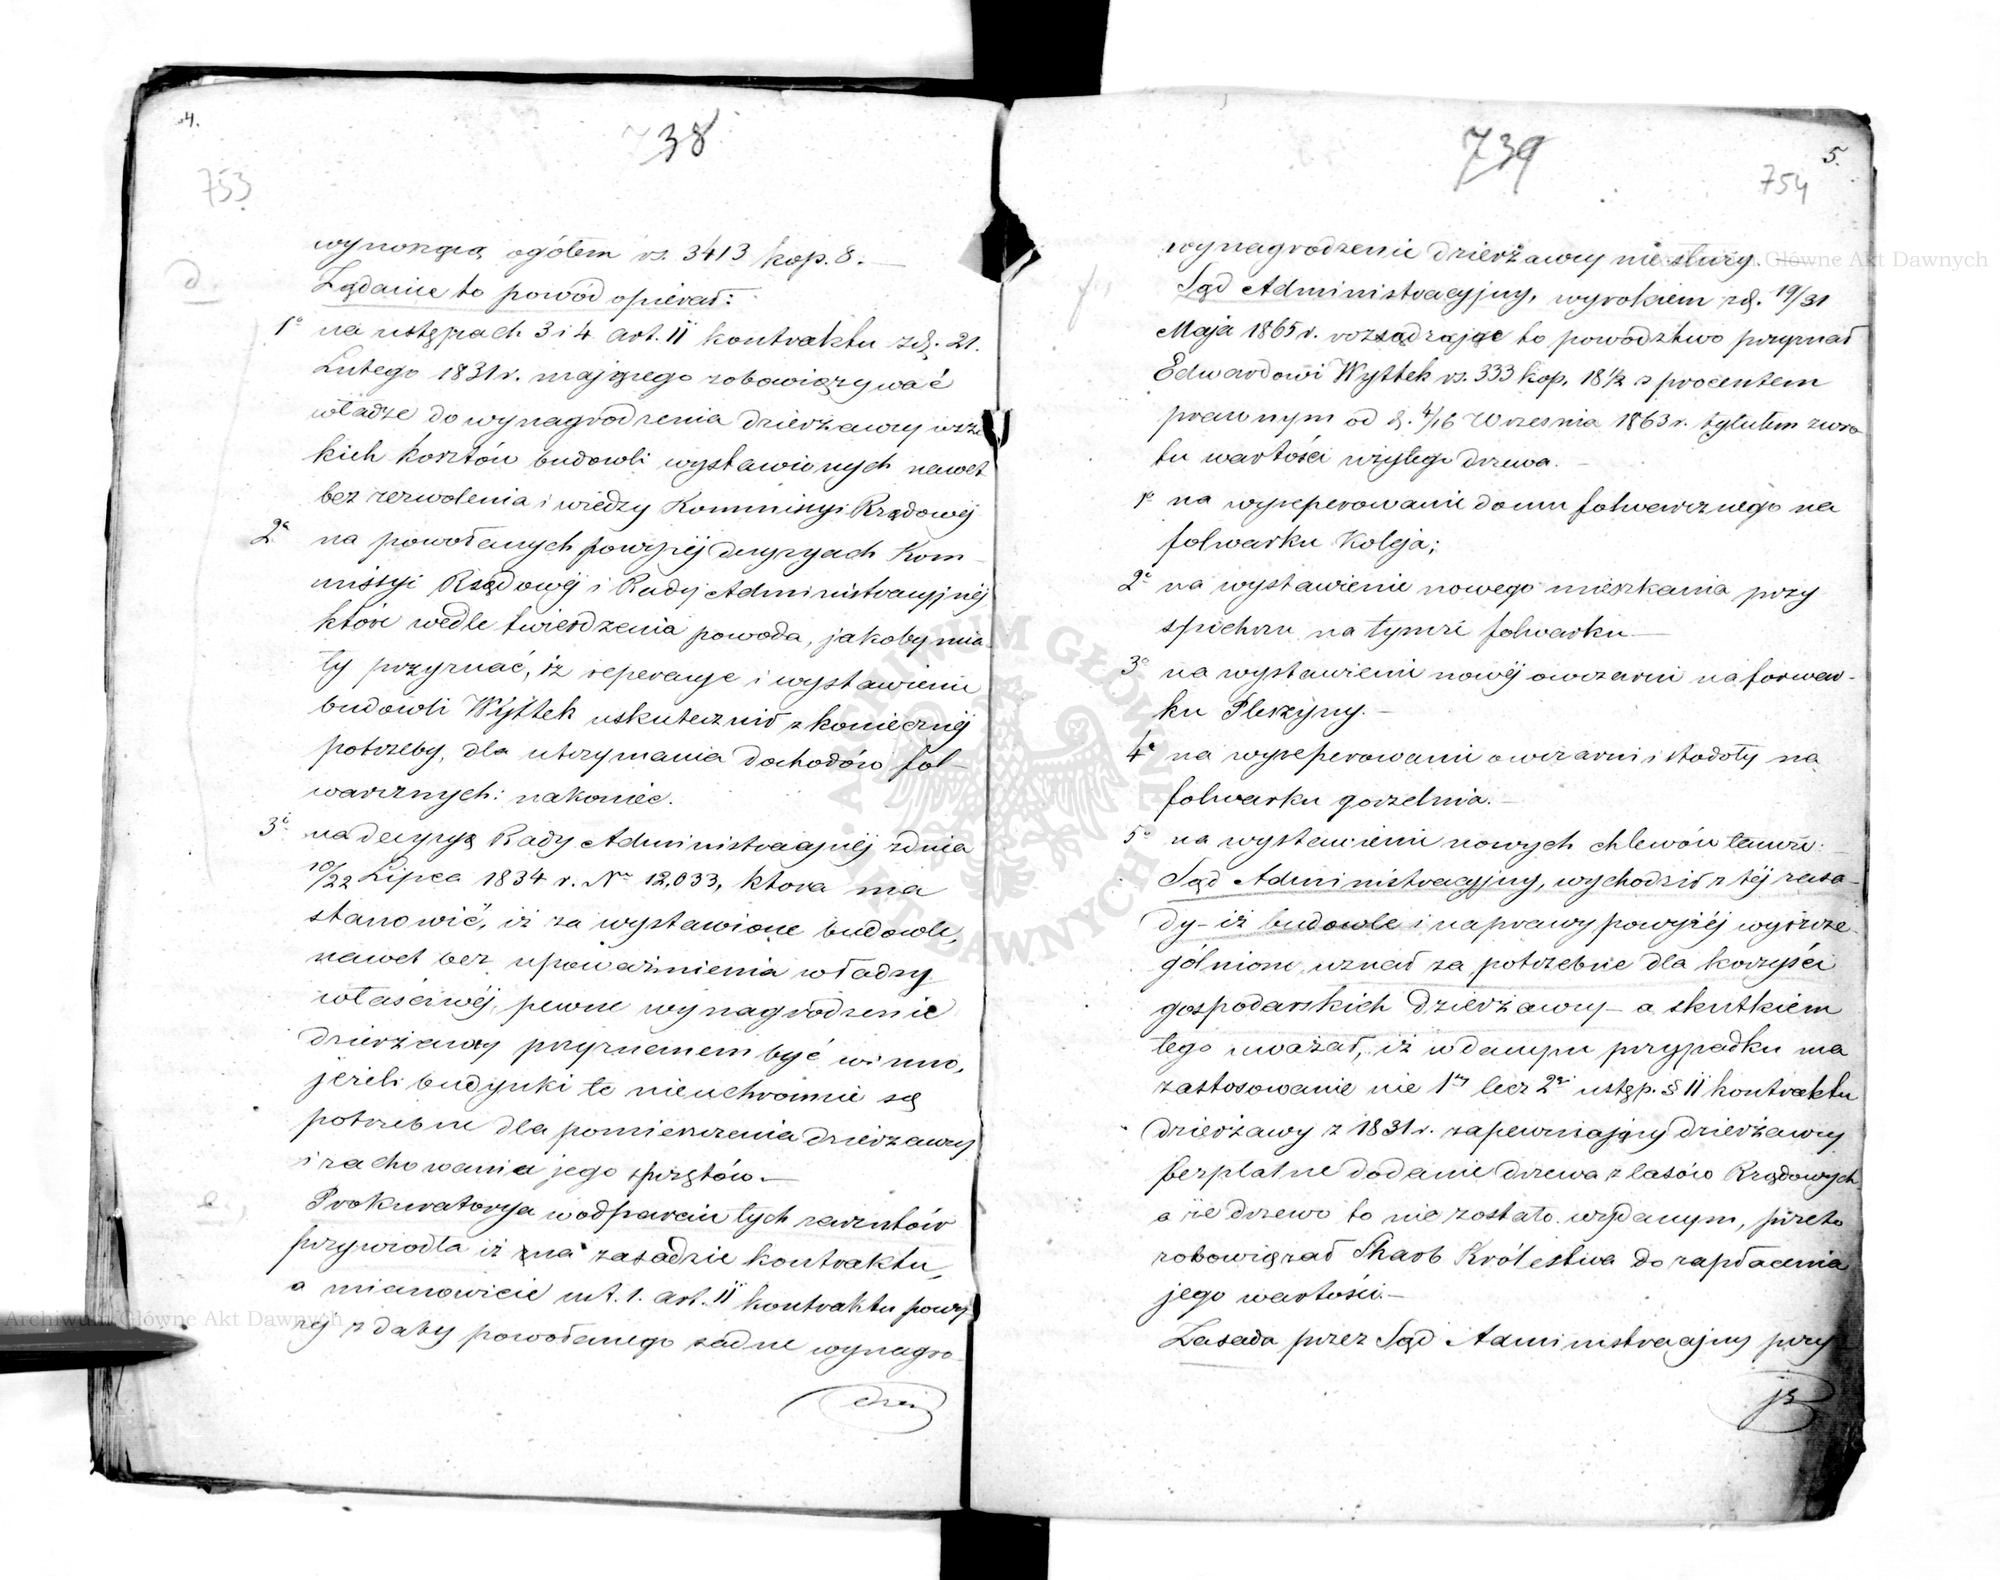 4.
738
753
d.
wynoszącą ogółem rs. 3413 kop. 8. —
Żądanie to powód opierał:
1o na ustępach 3 i 4 art. II kontraktu z d. 21.
Lutego 1831 r. mającego zobowiązywać
władze do wynagrodzenia dzierżawcy wszel
kich kosztów budowli wystawionych nawet
bez zezwolenia i wiedzy Kommisyi Rządowej
2o na powołanych powyżej decyzyach Kom-
missyi Rządowej i Rady Administracyjnej
które wedle twierdzenia powoda, jakoby mia-
ły przyznać, iż reperacye i wystawienie
budowli Wyttek uskutecznił z koniecznej
potrzeby, dla utrzymania dochodów fol-
warcznych: nakoniec.
3o na decyzyą Rady Administracyjnej z dnia
10/22 Lipca 1834 r. No 12,033, która ma
stanowić, iż za wystawione budowle,
nawet bez upoważnienia władzy
właściwej, pewne wynagrodzenie
dzierżawcy przyznanem być winno,
jeżeli budynki te nieuchronnie są
potrzebne dla pomieszczenia dzierżawcy
i zachowania jego sprzętów. —
e.
Prokuratorya w odparciu tych zarzutów
przywiodła iż na zasadzie kontraktu,
a mianowicie ust. 1. art. II kontraktu powy
żej z daty powołanego żadne wynagro-
dzenie
739
5.
754
f.
wynagrodzenie dzierżawcy nie służy. —
Sąd Administracyjny, wyrokiem z d. 19/31
Maja 1865 r. rozsądzając to powództwo przyznał
Edwardowi Wyttek rs. 333 kop. 18 1/2 z procentem
prawnym od d. 4/16 Września 1863 r. tytułem zwro
tu wartości użytego drzewa. —
1o na wyreperowanie domu folwarcznego na
folwarku Koleja;
2o na wystawienie nowego mieszkania przy
spichrzu na tymże folwarku —
3o na wystawienie nowej owczarni na forwar-
ku Pleszyny. —
4o na wyreperowanie owczarni i stodoły na
folwarku gorzelnia. —
5o na wystawienie nowych chlewów tamże:
Sąd Administracyjny, wychodził z tej zasa-
dy — iż budowle i naprawy powyżej wyszcze-
gólnione uznał za potrzebne dla korzyści
gospodarskich dzierżawcy — a skutkiem
tego uważał, iż w danym przypadku ma
zastosowanie nie 1szy lecz 2gi ustęp. § II kontraktu
dzierżawy z 1831 r. zapewniający dzierżawcy
bezpłatne dodanie drzewa z lasów Rządowych
a że drzewo to nie zostało wydanym, przeto
zobowiązał Skarb Królestwa do zapłacenia
jego wartości. —
Zasada przez Sąd Administracyjny przy
ję
Archiwum Główne Akt Dawnych
ARCHIWUM GŁÓWNE AKT DAWNYCH